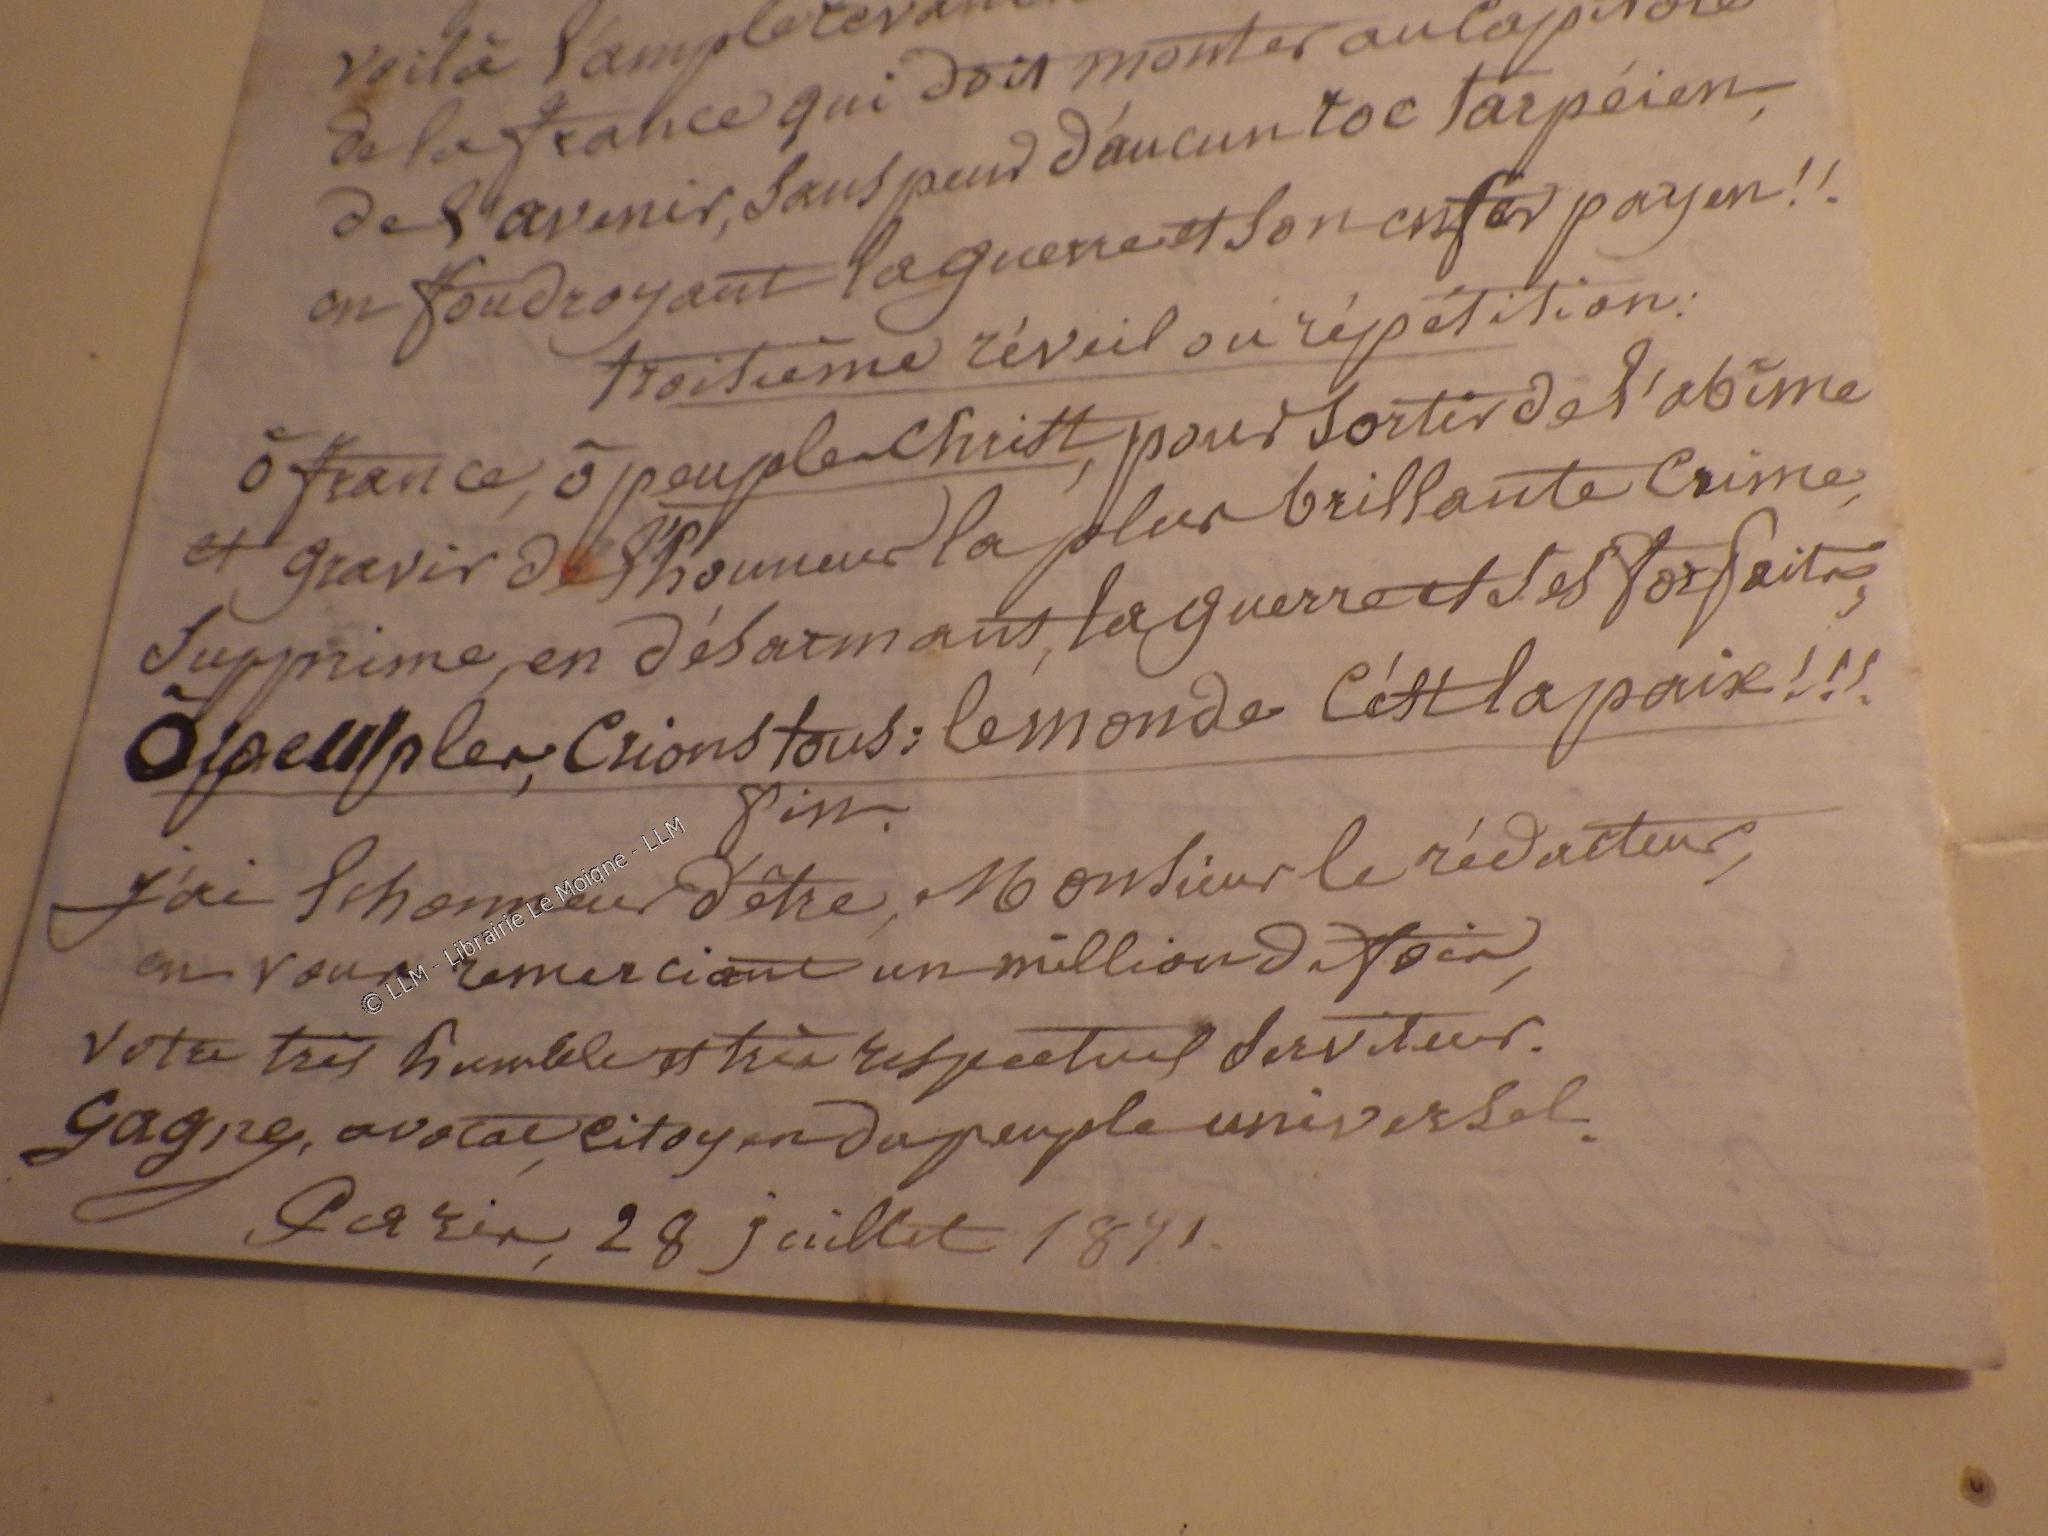 voilà l'ample
de la france qui doit monter au Capitole
de l'avenir, sans peur d'aucun roc tarpéien,
en foudroyant la guerre et son enfer payen!!
troisième réveil ou répétition:
ô france, ô peuple-Christ, pour sortir de l'abîme
et gravir de l'honneur la plus brillante Cime,
supprime, en désarmant, la guerre et ses forfaits;
Ô peuples, Crions tous: le monde C'est la paix!!!
fin.
j'ai l'honneur d'être, Monsieur le rédacteur,
en vous remerciant un million de fois,
votre très humble et très respectueux serviteur.
Gagne, avocat, citoyen du peuple universel.
Paris, 28 juillet 1871.
© LLM - Librairie Le Moigne - LLM